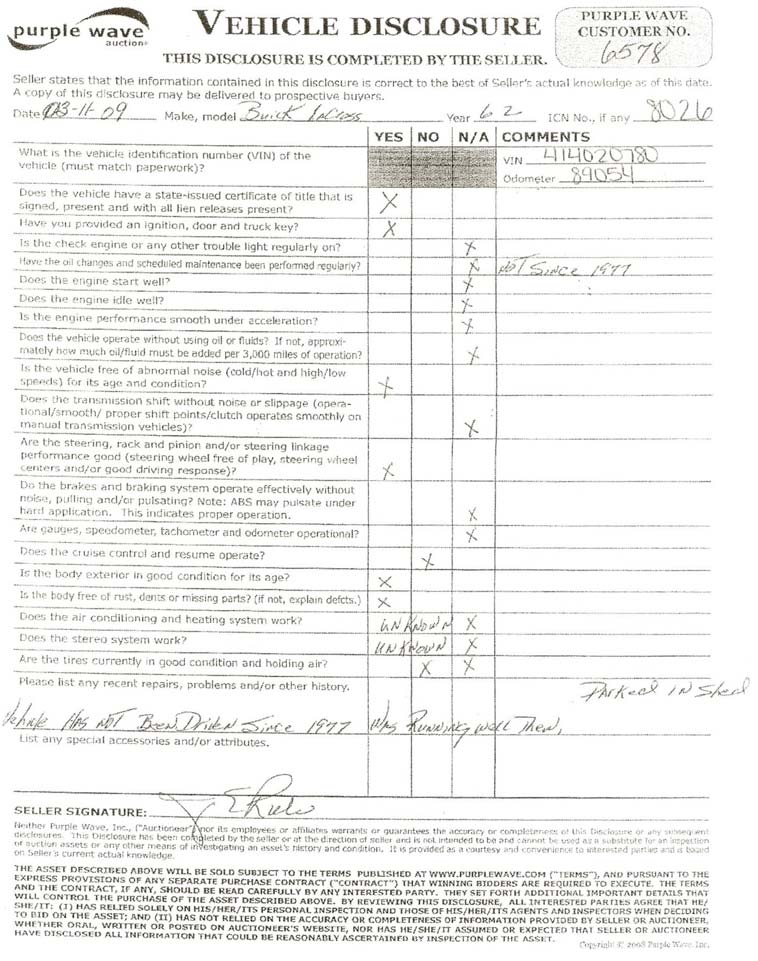 purple wave
auction
VEHICLE DISCLOSURE
THIS DISCLOSURE IS COMPLETED BY THE SELLER.
PURPLE WAVE
CUSTOMER NO.
6578
Seller states that the information contained in this disclosure is correct to the best of Seller's actual knowledge as of this date.
A copy of this disclosure may be delivered to prospective buyers.
Date 03-11-09 Make, model Buick Year 62 ICN No., if any 8026
YES NO N/A COMMENTS
What is the vehicle identification number (VIN) of the
vehicle (must match paperwork)?
VIN 414020780
Odometer 89054
Does the vehicle have a state-issued certificate of title that is
signed, present and with all lien releases present? X
Have you provided an ignition, door and truck key? X
Is the check engine or any other trouble light regularly on? X
Have the oil changes and scheduled maintenance been performed regularly? X NOT Since 1977
Does the engine start well? X
Does the engine idle well? X
Is the engine performance smooth under acceleration? X
Does the vehicle operate without using oil or fluids? If not, approxi-
mately how much oil/fluid must be added per 3,000 miles of operation? X
Is the vehicle free of abnormal noise (cold/hot and high/low
speeds) for its age and condition? X
Does the transmission shift without noise or slippage (opera-
tional/smooth/ proper shift points/clutch operates smoothly on
manual transmission vehicles)? X
Are the steering, rack and pinion and/or steering linkage
performance good (steering wheel free of play, steering wheel
centers and/or good driving response)? X
Do the brakes and braking system operate effectively without
noise, pulling and/or pulsating? Note: ABS may pulsate under
hard application. This indicates proper operation. X
Are gauges, speedometer, tachometer and odometer operational? X
Does the cruise control and resume operate? X
Is the body exterior in good condition for its age? X
Is the body free of rust, dents or missing parts? (if not, explain defcts.) X
Does the air conditioning and heating system work? UNKNOWN X
Does the stereo system work? UNKNOWN X
Are the tires currently in good condition and holding air? X X
Please list any recent repairs, problems and/or other history.
Parked IN Shed
Vehicle HAS NOT Been Driven Since 1977 Was Running Well Then,
List any special accessories and/or attributes.
SELLER SIGNATURE:
Neither Purple Wave, Inc., ("Auctioneer") nor its employees or affiliates warrants or guarantees the accuracy or completeness of this Disclosure or any subsequent
disclosures. This Disclosure has been completed by the seller or at the direction of seller and is not intended to be and cannot be used as a substitute for an inspection
of auction assets or any other means of investigating an asset's history and condition. It is provided as a courtesy and convenience to interested parties and is based
on Seller's current actual knowledge.
THE ASSET DESCRIBED ABOVE WILL BE SOLD SUBJECT TO THE TERMS PUBLISHED AT WWW.PURPLEWAVE.COM ("TERMS"), AND PURSUANT TO THE
EXPRESS PROVISIONS OF ANY SEPARATE PURCHASE CONTRACT ("CONTRACT") THAT WINNING BIDDERS ARE REQUIRED TO EXECUTE. THE TERMS
AND THE CONTRACT, IF ANY, SHOULD BE READ CAREFULLY BY ANY INTERESTED PARTY. THEY SET FORTH ADDITIONAL IMPORTANT DETAILS THAT
WILL CONTROL THE PURCHASE OF THE ASSET DESCRIBED ABOVE. BY REVIEWING THIS DISCLOSURE, ALL INTERESTED PARTIES AGREE THAT HE/
SHE/IT: (I) HAS RELIED SOLELY ON HIS/HER/ITS PERSONAL INSPECTION AND THOSE OF HIS/HER/ITS AGENTS AND INSPECTORS WHEN DECIDING
TO BID ON THE ASSET; AND (II) HAS NOT RELIED ON THE ACCURACY OR COMPLETENESS OF INFORMATION PROVIDED BY SELLER OR AUCTIONEER,
WHETHER ORAL, WRITTEN OR POSTED ON AUCTIONEER'S WEBSITE, NOR HAS HE/SHE/IT ASSUMED OR EXPECTED THAT SELLER OR AUCTIONEER
HAVE DISCLOSED ALL INFORMATION THAT COULD BE REASONABLY ASCERTAINED BY INSPECTION OF THE ASSET.
Copyright © 2008 Purple Wave, Inc.